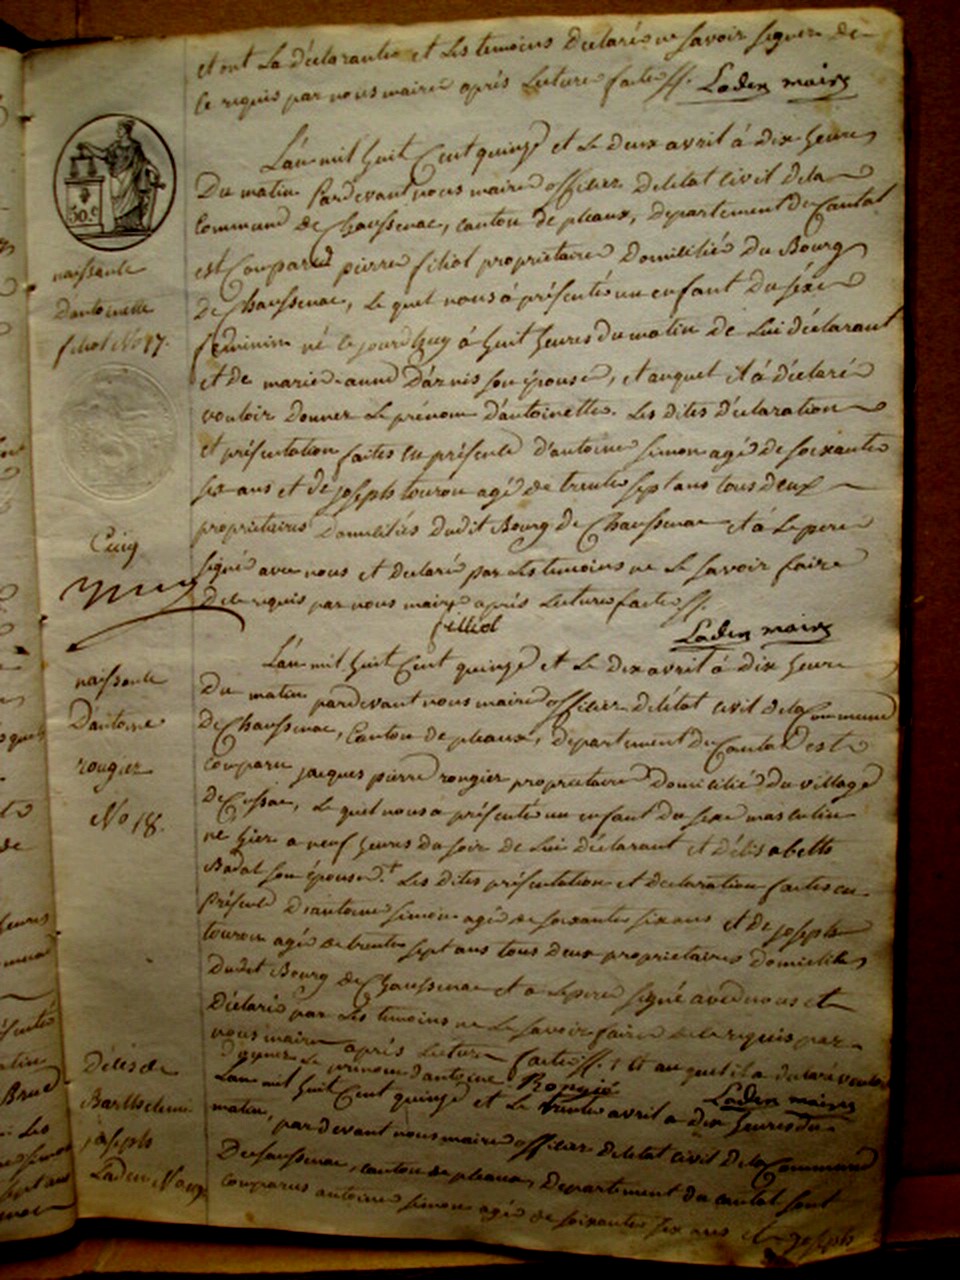 et ont La déclarante et Les temoins Déclaré ne savoir signer de
ce requis par nous maire après Lecture faite ff. Laden maire
L'an mil huit Cent quinze et Le deux avril à dix heures
Du matin Pardevant nous maire officier Deletat civil dela
Commune De Chaussenac, canton de pleaux, departement du Cantal
est Comparu pierre filiol propriétaire Domicilié Du Bourg
De Chaussenac, Le quel nous à présenté un enfant Du séxe
feminin né ce jourdhuy à huit heures du matin De Lui déclarant
et De marie-anne Darnis son épouse, et auquel il à déclaré
vouloir Donner Le prénom D'antoinette. Les dites Déclaration
et présentation faites en présence d'antoine simon agé de soixante
six ans et de joseph touron agé de trente sept ans tous deux
propriétaires Domiciliés dudit Bourg de Chaussenac et à Le pere
signé avec nous et Declaré par Les temoins ne Le savoir faire
De ce requis par nous maire après Lecture faite ff.
filliol
Laden maire
L'an mil huit Cent quinze et Le dix avril à dix heure
Du matin pardevant nous maire officier Delétat civil dela Commune
De Chaussenac, Canton de pleaux, département du Cantal est
Comparu jacques pierre rongier propriétaire Domicilié du village
De Cussac, Le quel nous a présenté un enfant Du sexe masculin
né hier a neuf heures du soir de Lui Déclarant et D'élisabeth
Badal son épouse. + Les Dites présentation et déclaration faites en
Présence D'antoine simon agé de soixante six ans et De joseph
touron agé de trente sept ans tous deux propriétaires Domiciliés
Dudit Bourg de Chaussenac et a Le pere signé avec nous et
Déclaré par Les temoins ne Le savoir faire de ce requis par
nous maire après Lecture faite ff. + et au quel il a declaré vouloir
donner Le prénom d'antoine Rongié Laden maire
L'an mil huit Cent quinze et Le trente avril a dix heures du
matin, pardevant nous maire officier deletat civil De la Commune
De Chaussenac, canton de pleaux Departement du cantal sont
comparus antoine simon agé de soixante six ans et joseph
50.c
naissance
d'antoinette
filiol No 17.
naissance
D'antoine
rongier
No 18.
Décès de
Barthelemi
joseph
Laden No 19.